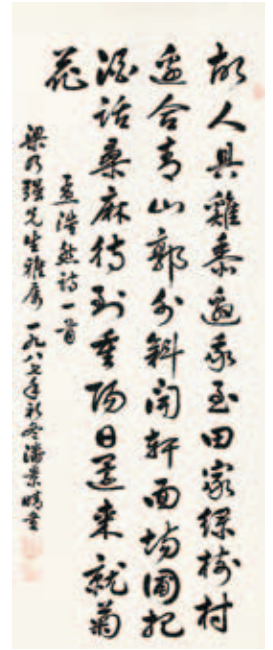 故人具雞黍邀我至田家綠樹村
邊合青山郭外斜開軒面場圃把
酒話桑麻待到重陽日還來就菊
花
孟浩然詩一首
梁乃强先生雅屬 一九八七年初冬潘景晴書